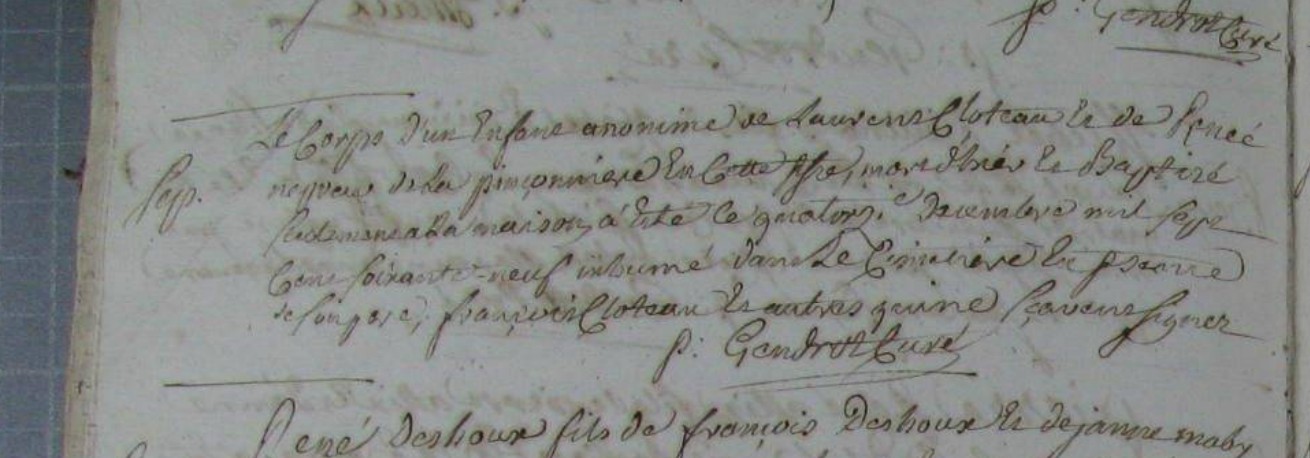 p: Gendrot Curé
Le Corps d'un Enfant anonime de Laurent Cloteau Et de Renée
Sep. nepveu de la pinçonnière En Cette psse, mort d'hier Et Baptizé
seulement a la maison, à Esté ce quatorze Decembre mil sept
Cent soixante-neuf inhumé dans Le Cimetière En psence
de son pere, françois Cloteau Et autres qui ne sçavent signer
p: Gendrot Curé
René Deshoux fils de françois Deshoux Et de janne maby